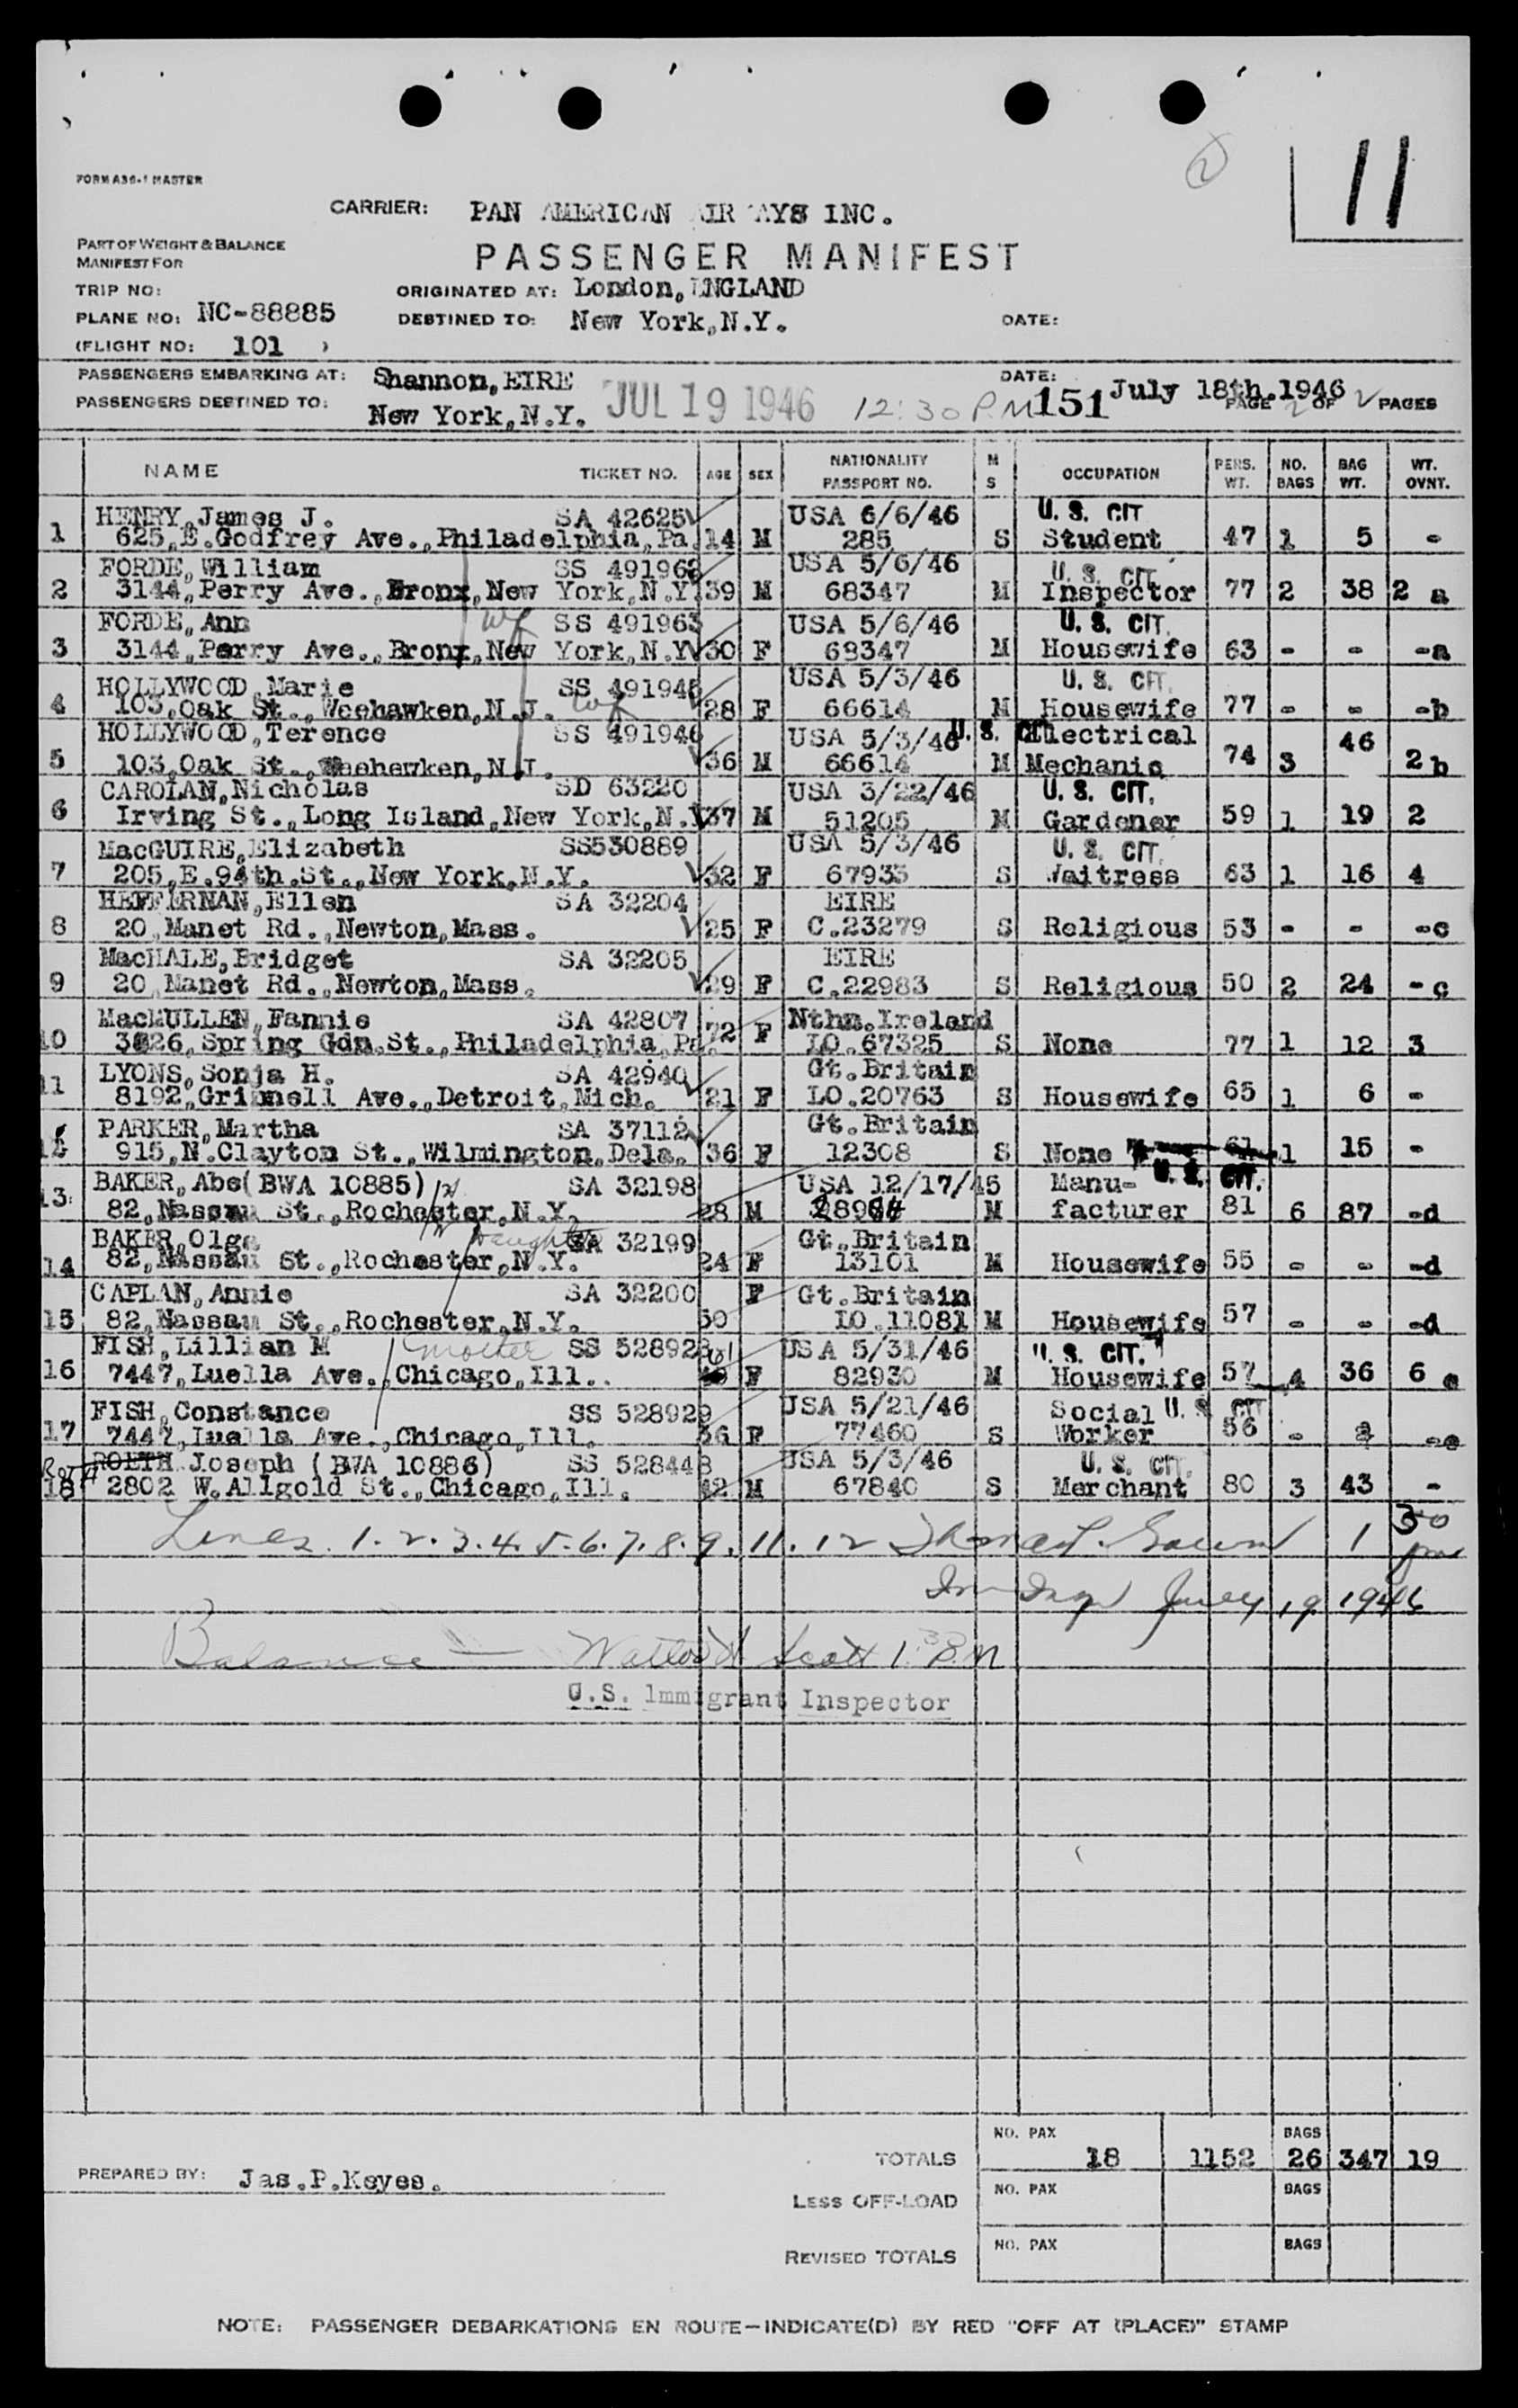 11
2
FORM A36-1 MASTER
CARRIER: PAN AMERICAN AIR AYS INC.
PART OF WEIGHT & BALANCE
MANIFEST FOR
PASSENGER MANIFEST
TRIP NO:
ORIGINATED AT: London, ENGLAND
PLANE NO: NC-88885
DESTINED TO: New York, N.Y.
DATE:
(FLIGHT NO: 101 )
PASSENGERS EMBARKING AT: Shannon, EIRE
DATE: July 18th.1946
PASSENGERS DESTINED TO: New York, N.Y. JUL 19 1946 12:30 P.M 151 PAGE 2 OF 2 PAGES
NAME TICKET NO. AGE SEX NATIONALITY PASSPORT NO. M S OCCUPATION PERS. WT. NO. BAGS BAG WT. WT. OVNT.
HENRY, James J. SA 42625 USA 6/6/46 U. S. CIT
1 625, E. Godfrey Ave., Philadelphia, Pa. 14 M 285 S Student 47 1 5 -
FORDE, William SS 491962 USA 5/6/46 U. S. CIT
2 3144, Perry Ave., Bronx, New York, N.Y. 39 M 68347 M Inspector 77 2 38 2 a
FORDE, Ann wf SS 491963 USA 5/6/46 U. S. CIT.
3 3144, Perry Ave., Bronx, New York, N.Y 30 F 68347 M Housewife 63 - - -a
HOLLYWOOD, Marie SS 491945 USA 5/3/46 U. S. CIT.
4 103, Oak St., Weehawken, N.J. wf 28 F 66614 M Housewife 77 - - -b
HOLLYWOOD, Terence SS 491946 USA 5/3/46 U. S. CIT Electrical
5 103, Oak St., Weehawken, N.J. 36 M 66614 M Mechanic 74 3 46 2 b
CAROLAN, Nicholas SD 63220 USA 3/22/46 U. S. CIT.
6 Irving St., Long Island, New York, N.Y 37 M 51205 M Gardener 59 1 19 2
MacGUIRE, Elizabeth SS530889 USA 5/3/46 U. S. CIT.
7 205, E. 94th. St., New York, N.Y. 32 F 67935 S Waitress 63 1 16 4
HEFFERNAN, Ellen SA 32204 EIRE
8 20, Manet Rd., Newton, Mass. 25 F C.23279 S Religious 53 - - -c
MacHALE, Bridget SA 32205 EIRE
9 20, Manet Rd., Newton, Mass. 29 F C.22983 S Religious 50 2 24 - c
MacMULLEN, Fannie SA 42807 Nthn. Ireland
10 3826, Spring Gdn. St., Philadelphia, Pa. 72 F LO.67325 S None 77 1 12 3
LYONS, Sonja H. SA 42940 Gt. Britain
11 8192, Grinnell Ave., Detroit, Mich. 21 F LO.20763 S Housewife 65 1 6 -
PARKER, Martha SA 37112 Gt. Britain
12 915, N. Clayton St., Wilmington, Dela. 36 F 12308 S None 61 1 15 -
BAKER, Abe (BWA 10885) SA 32198 USA 12/17/45 Manu- U. S. CIT.
13 82, Nassau St., Rochester, N.Y. 28 M M facturer 81 6 87 -d
BAKER, Olga daughter SA 32199 Gt. Britain
14 82, Nassau St., Rochester, N.Y. 24 F 13101 M Housewife 55 - - -d
CAPLAN, Annie SA 32200 F Gt. Britain
15 82, Nassau St., Rochester, N.Y. 50 LO.11081 M Housewife 57 - - -d
FISH, Lillian M mother SS 528928 61 USA 5/31/46 U. S. CIT.
16 7447, Luella Ave., Chicago, Ill.. F 82930 M Housewife 57 4 36 6 e
FISH, Constance SS 528929 USA 5/21/46 Social U. S. CIT
17 7447, Luella Ave., Chicago, Ill. 36 F 77460 S Worker 56 - -e
Roth ROETH Joseph (BWA 10886) SS 528448 USA 5/3/46 U. S. CIT.
18 2802 W. Allgold St., Chicago, Ill. 42 M 67840 S Merchant 80 3 43 -
Lines. 1. 2. 3. 4. 5. 6. 7. 8. 9. 11. 12 1 30 pm
Imm Insp July 19 1946
Balance — Scott 1:30 P.M
U.S. Immigrant Inspector
TOTALS NO. PAX 18 1152 BAGS 26 347 19
PREPARED BY: Jas. P. Keyes.
LESS OFF-LOAD NO. PAX BAGS
REVISED TOTALS NO. PAX BAGS
NOTE: PASSENGER DEBARKATIONS EN ROUTE—INDICATE(D) BY RED "OFF AT (PLACE)" STAMP